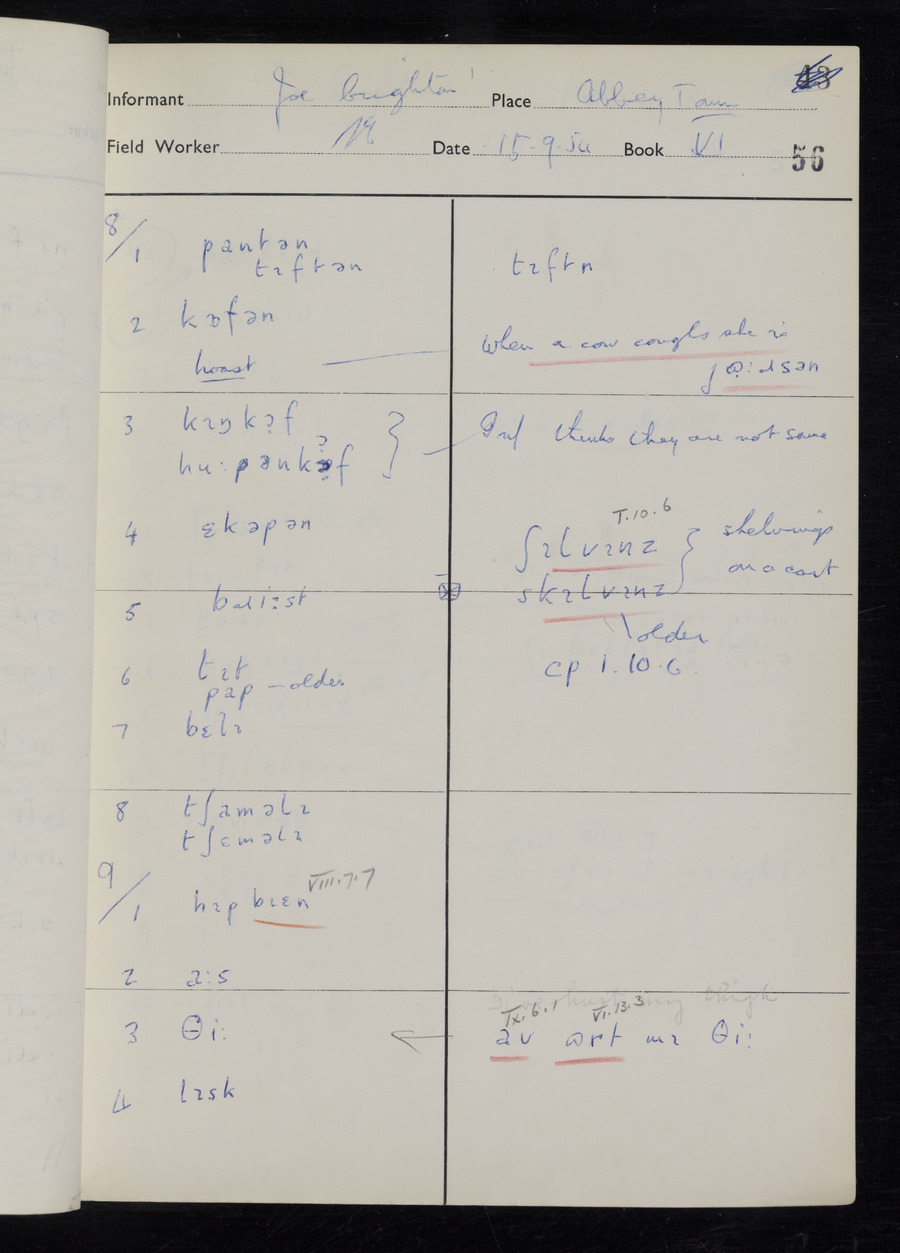 Informant Joe Brighton Place Abbey Town
Field Worker Date 15-9-54 Book VI 56
8/1 pantən
tɪftən tɪftn
2 kɒfən
hoast when a cow coughs she is
3 kɪŋkɔf Inf thinks they are not same
hu:pənkɔf
4 ɛkəpən ʃɪlvɪnz I.10.6 shelvings
on a cart
5 skɪlvɪnz
older
6 tɪt cp 1.10.6
pap — older
7 bɛlɪ
8 tʃaməlɪ
tʃɛməlɪ
9/1 hɪpbɪɛn VIII.7.7
2 a:s
I've hurt my thigh
IX.6.1 VI.13.3
3 θi: av ɷrt mɪ θi:
4 lɪsk